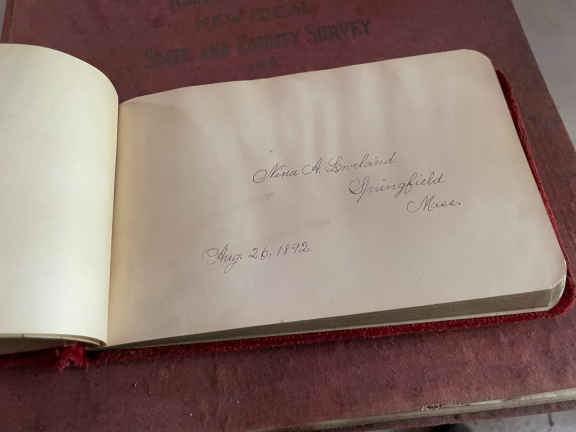 NEW IDEAL
STATE AND COUNTY SURVEY
Nina A. Loveland
Springfield
Mass.
Aug. 26, 1892.